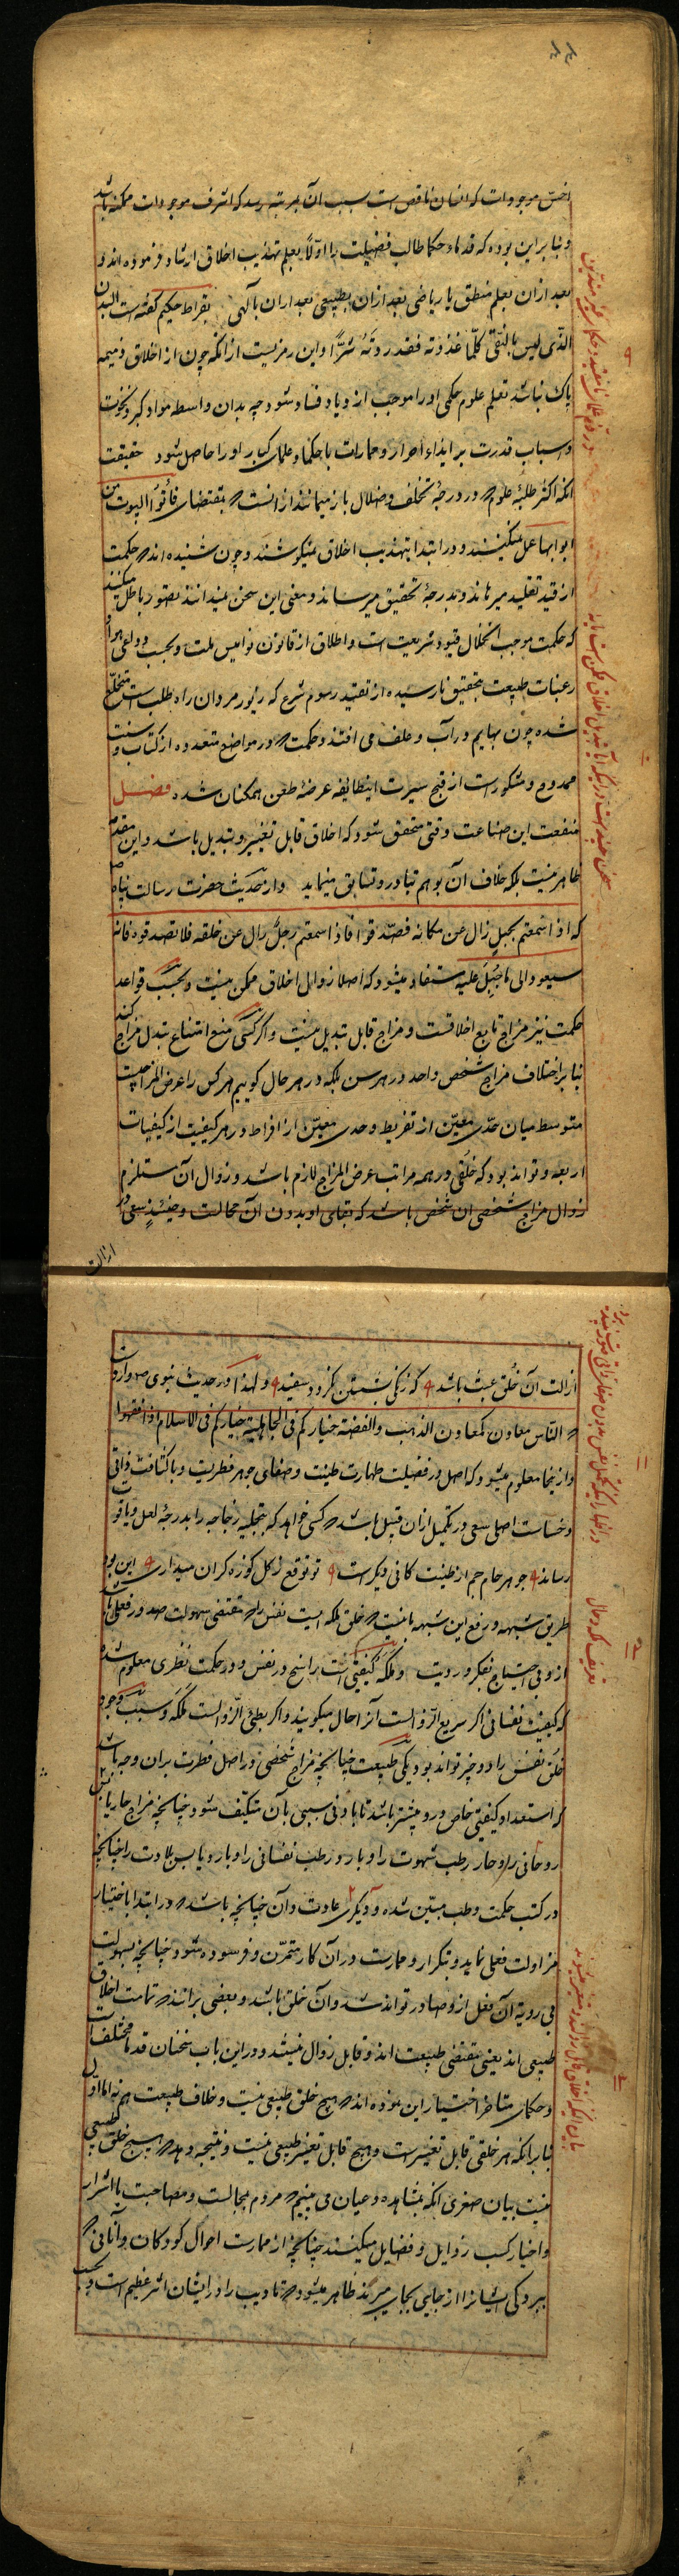 اخسّ موجودات که انسان ناقص است بسبب آن بمرتبه رسد که اشرف موجودات ممکنه باشد
و بنا برین بوده که قدماء حکما طالب فضیلت را اوّلاً بعلم تهذیب اخلاق ارشاد فرموده اند و
بعد ازان بعلم منطق یا ریاضی بعد ازان بطبیعی بعد ازان بالهی بقراط حکیم گفته است البدن
الذی لیس بالنقی کلما غذوته فقد زدته شرًّا و این رمزیست ازانکه چون از اخلاق ذمیمه
پاک نباشد تعلم علوم حکمی او را موجب ازدیاد فساد شود چه بدان واسطه مواد کبر و نخوت
و اسباب قدرت بر ایذاء احرار و ممارات با حکما و علمای کبار او را حاصل شود حقیقت
آنکه اکثر طلبه علوم که در درجهٔ تخلف و ضلال باز میمانند ازانست که بمقتضای فأتوا البیوت من
ابوابها عمل نمیکنند و در ابتدا بتهذیب اخلاق نمیکوشند و چون شنیده اند که حکمت
از قید تقلید میرهاند و بدرجهٔ تحقیق میرساند و معنی این سخن نمیدانند تصور باطل میکنند
که حکمت موجب انحلال قیود شریعت است و اطلاق از قانون نوامیس ملت و بحسب دواعی هوا و
رغبات طبیعت بتحقیق نارسیده از تقید رسوم شرع که زیور مردان راه طلب است متخلّع
شده چون بهایم در آب و علف می افتند و حکمت که در مواضع متعدده از کتاب و سنت
ممدوح و مشکورست از قبح سیرت اینطایفه عرضهٔ طعن همکنان شده فصل
منفعت این صناعت وقتی متحقق شود که اخلاق قابل تغییر و تبدیل باشد و این مقدمه
ظاهر نیست بلکه خلاف آن بوهم تبادر و تسابق مینماید و از حدیث حضرت رسالت پناه
که اذا سمعتم بجبل زال عن مکانه فصدقوا فاذا سمعتم رجل زال عن خلقه فلا تصدقوه فانه
سیعود الی ما جبل علیه مستفاد میشود که اصلا زوال اخلاق ممکن نیست و بحسب قواعد
حکمت نیز مزاج تابع اخلاقست و مزاج قابل تبدیل نیست و اگر کسی منع امتناع تبدل مزاج کند
بنا بر اختلاف مزاج شخص واحد در هر سن بلکه در هر حال گوییم هر کس را عرض المزاجیست
متوسط میان حدّی معیّن از تفریط و حدی معیّن از افراط در هر کیفیت از کیفیات
اربعه و تواند بود که خلقی در همه مراتب عرض المزاج لازم باشد و زوال آن مستلزم
زوال مزاج شخصی آن شخص باشد که بقای او بدون آن محالست و حینئذ سعی در
ازالت
ازالت آن خلق عبث باشد که زنگی بشستن نگردد سفید و لهذا در حدیث نبوی وارد
که الناس معادن کمعادن الذهب والفضة خیارکم فی الجاهلیة خیارکم فی الاسلام اذا فقهوا
و ازینجا معلوم میشود که اصل در فضیلت طهارت طینت و صفای جوهر فطریست و با کثافت ذاتی
و خساست اصلی سعی در تکمیل ازان قبیل باشد که کسی خواهد که بتجلیه زجاجه را بدرجهٔ لعل و یاقوت
رساند جوهر جام جم از طینت کانی دیگرست تو توقع ز گل کوزه گران میداری این بود
طریق شبهه و رفع این شبهه بآنست که خلق ملکه ایست نفس را که مقتضی سهولت صدور فعلی باشد
ازو بی احتیاج بفکر و رویت و ملکه کیفیتی است راسخ در نفس و در حکمت نظری معلوم شده
که کیفیت نفسانی اگر سریع الزوالست آنرا حال میگویند و اگر بطئ الزوالست ملکه و سبب وجود
خلق نفس را دو چیز تواند بود یکی طبیعت چنانچه مزاج شخصی در اصل فطرت بران وجه باشد
که استعداد کیفیتی خاص درو بیشتر باشد تا بادنی سببی بآن متکیّف شود چنانچه مزاج حار یابس
در کتب حکمت و طب مبیّن شده و دیگری عادت و آن چنانچه باشد که در ابتدا باختیار
مزاولت فعلی نماید و بتکرار و ممارست در آن کار متمرّن و فرسوده شود چنانچه بسهولت
بی رویة آن فعل ازو صادر تواند شد و آن خلق باشد و بعضی برانند که تمامت اخلاق
طبیعی اند یعنی مقتضی طبیعت اند و قابل زوال نیستند و در این باب سخنان قدما مختلف است
و حکمای متاخر اختیار این نموده اند که هیچ خلق طبیعی نیست و خلاف طبیعت هم نه اما اول
بنا بر آنکه هر خلقی قابل تغییرست و هیچ قابل تغییر طبیعی نیست و نتیجه دهد که هیچ خلق طبیعی
نیست بیان صغری آنکه بمشاهده و عیان می بینیم که مردم بمجالست و مصاحبت با اشرار
و اخیار کسب رذایل و فضایل میکنند چنانچه از ممارست احوال کودکان و آنانی که
ببردگی ایشانرا از جایی بجایی میبرند ظاهر میشود که تادیب را در ایشان اثر عظیم است و بحسب